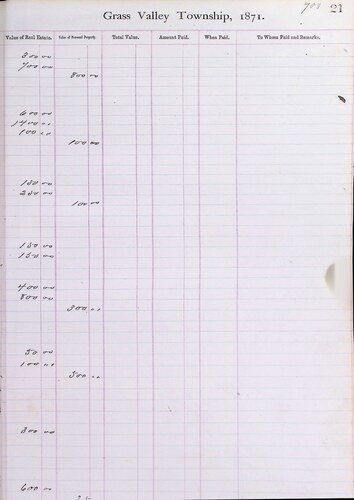 Grass Valley Township, 1871.
21
Value of Real Estate. Value of Personal Property. Total Value. Amount Paid. When Paid. To Whom Paid and Remarks.
300 00
700 00
800 00
600 00
1400 00
100 00
100 00
150 00
250 00
100 00
150 00
150 00
400 00
800 00
300 00
50 00
100 00
500 00
300 00
600 00